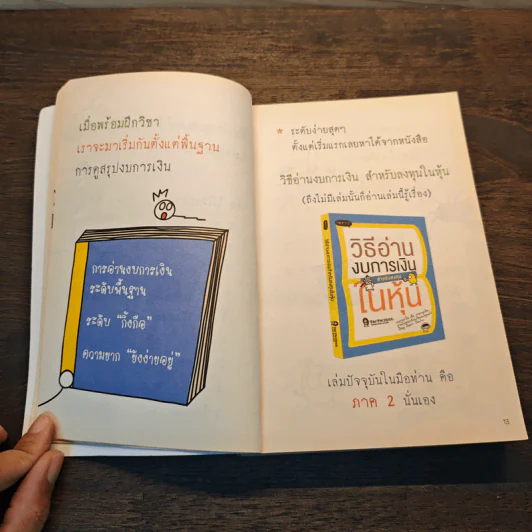 เมื่อพร้อมฝึกวิชา
เราจะมาเริ่มกันตั้งแต่พื้นฐาน
การดูสรุปงบการเงิน
การอ่านงบการเงิน
ระดับพื้นฐาน
ระดับ "กิ้งกือ"
ความยาก "ยิ่งง่ายอยู่"
* ระดับง่ายสุดๆ
ตั้งแต่เริ่มแรกเลยหาได้จากหนังสือ
วิธีอ่านงบการเงิน สำหรับลงทุนในหุ้น
(ถึงไม่มีเล่มนั้นก็อ่านเล่มนี้รู้เรื่อง)
วิธีอ่าน
งบการเงิน
สำหรับลงทุน
ในหุ้น
เล่มปัจจุบันในมือท่าน คือ
ภาค 2 นั่นเอง
13